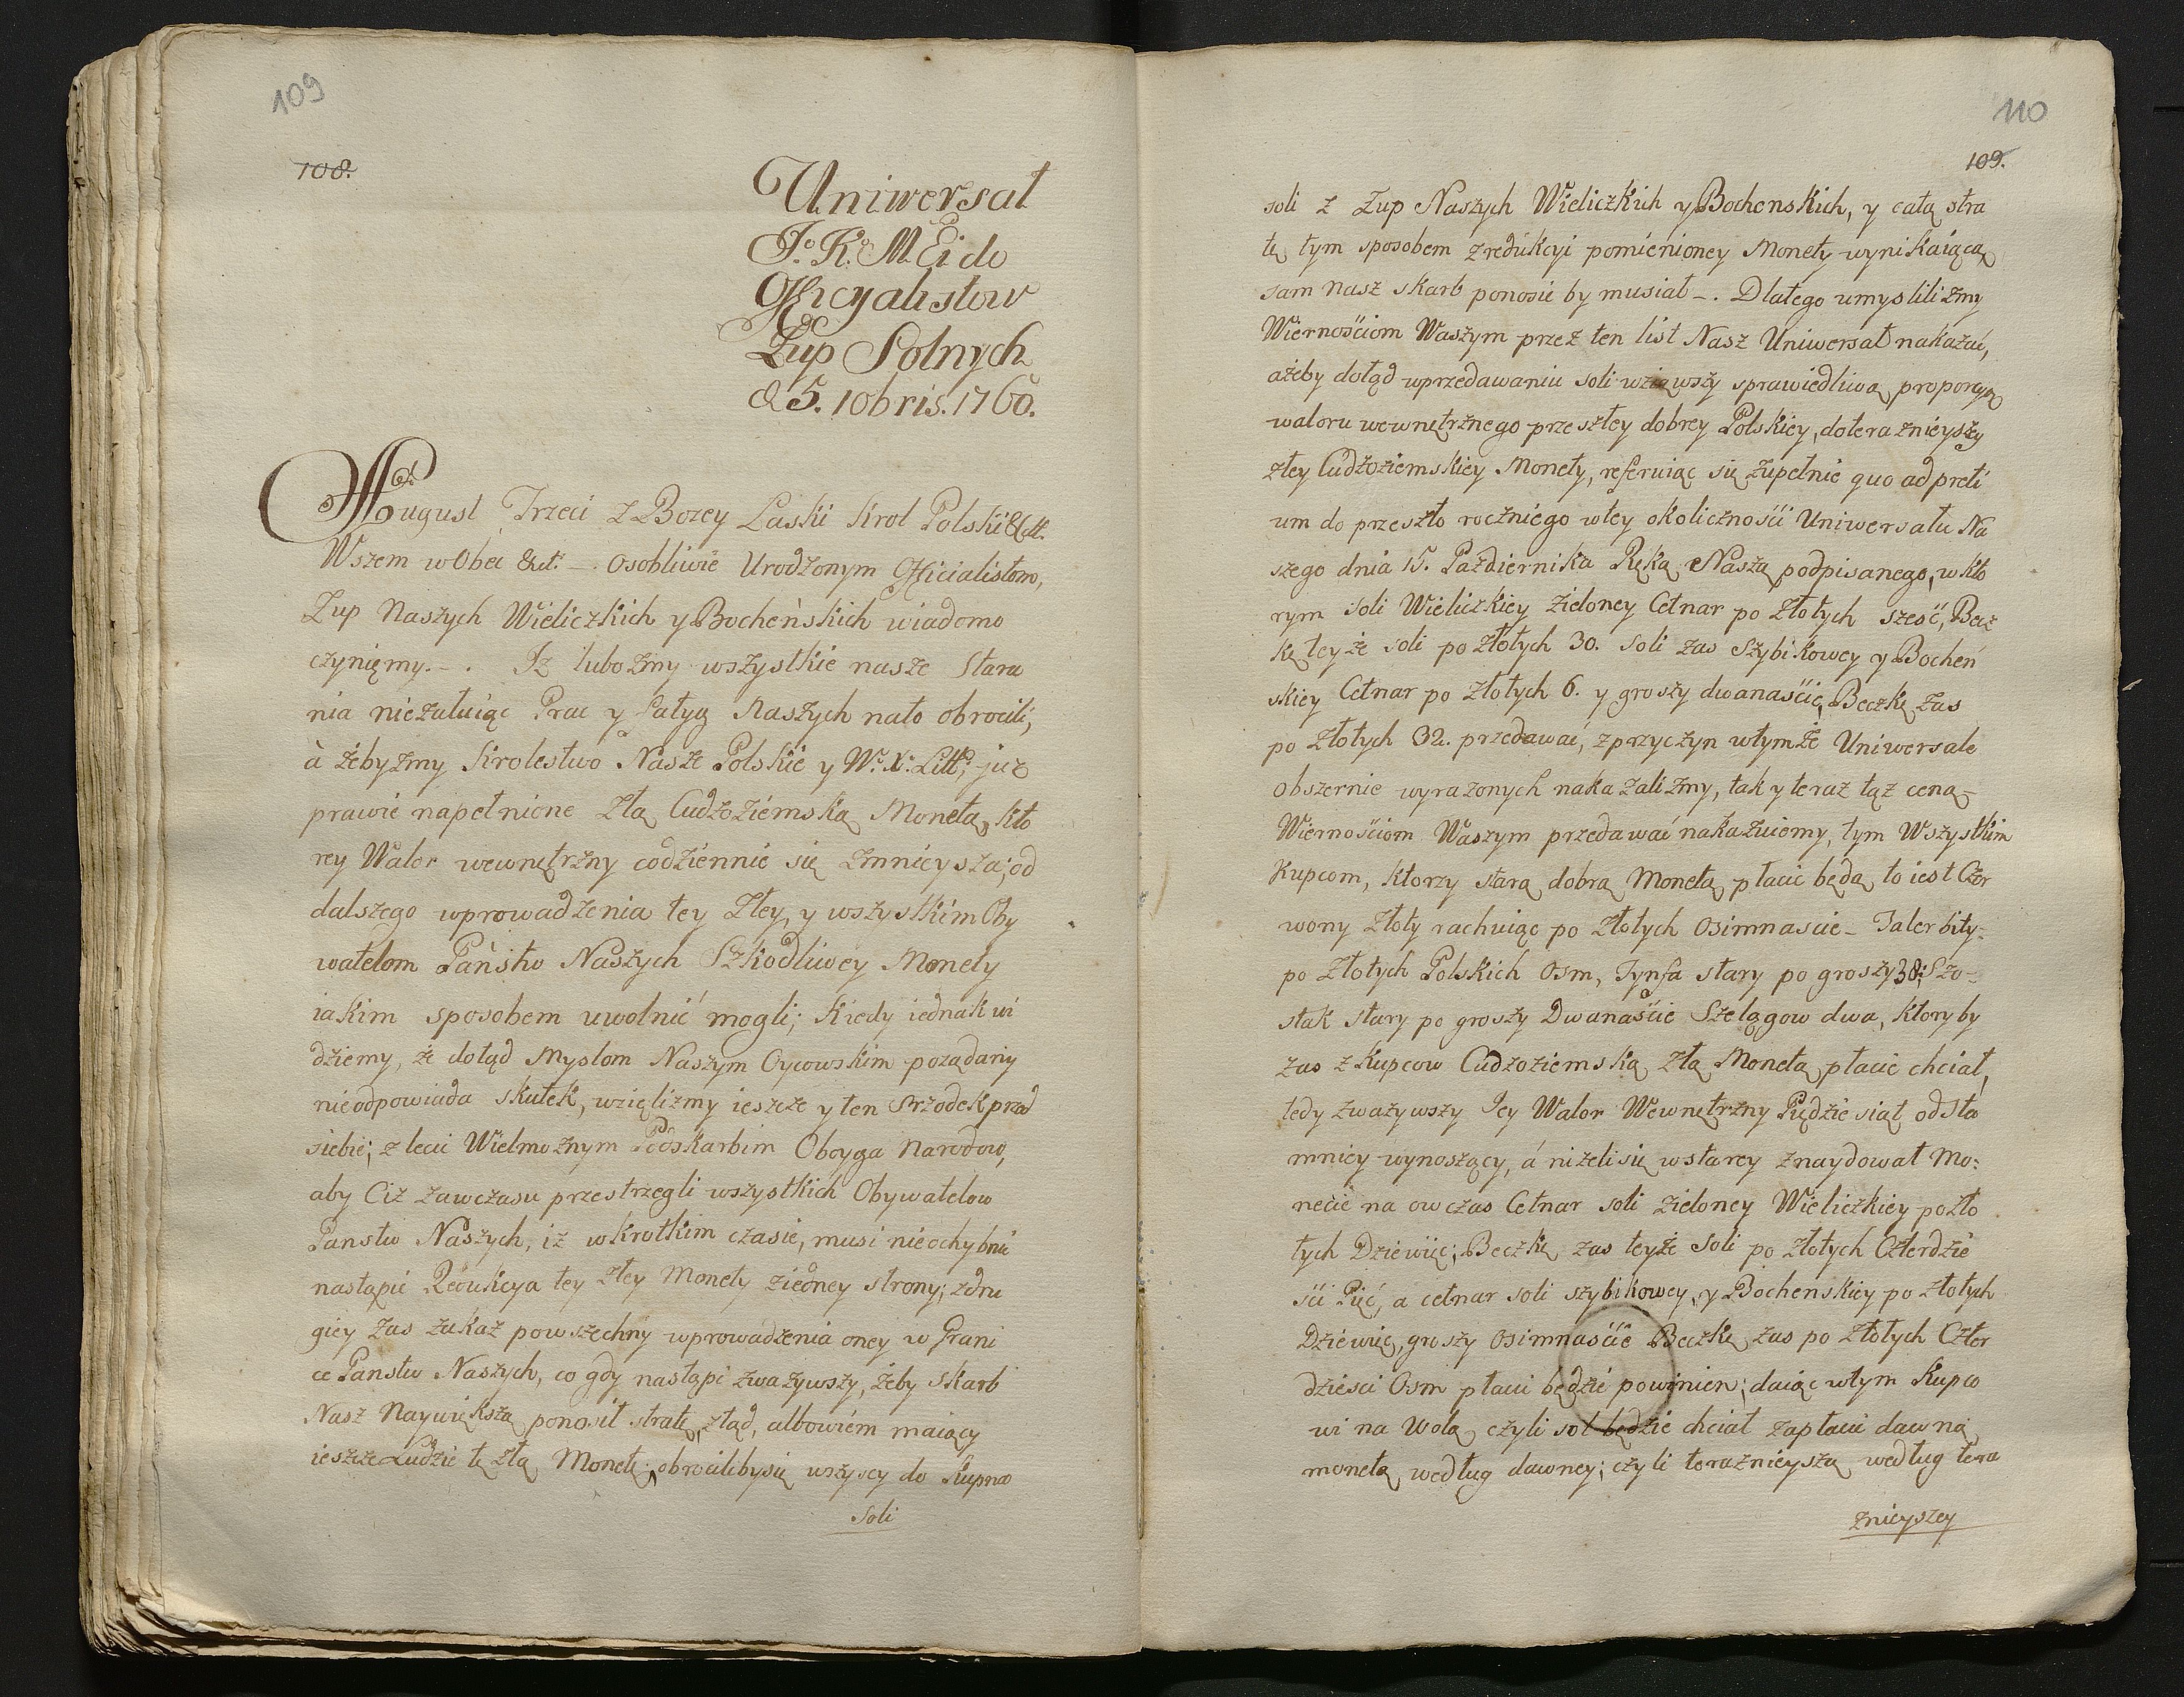 109
108.
Uniwersał
Jo. K. M. Ei do
Officyalistow
Żup Solnych
d 5. 10bris. 1760.
August Trzeci z Bozey Łaski Krol Polski &ctt.
Wszem wObec &ctt. —. osobliwie Urodzonym Officialistom,
Zup Naszych Wieliczkich y Bocheńskich wiadomo
czyniemy. —. Iż lubo żmy wszystkie nasze Stara
nia nieżałuiąc Prac y Fatyg Naszych nato obrocili,
à żebyżmy Krolestwo Nasze Polskie y W. X. Litt; juz
prawie napełnione Złą Cudzoziemską Monetą, kto
rey Walor wewnętrzny codziennie się zmnieysza; od
dalszego wprowadzenia tey Zley, y wszystkim Oby
watelom Państw Naszych Szkodliwey Monety
iakim sposobem uwolnić mogli; Kiedy iednak wi
dziemy, że dotąd Myslom Naszym Oycowskim poządany
nieodpowiada skutek, wzięliżmy ieszcze y ten Srzodek przed
siebie; zlecić Wielmoznym Podskarbim Oboyga Narodow,
aby Ciż zawczasu przestrzegli wszystkich Obywatelow
Panstw Naszych, iż wkrotkim czasie, musi nieochybnie
nastąpić Redukcya tey zley Monety ziedney strony; zdru
giey zas zakaz powszechny wprowadzenia oney w Grani
ce Panstw Naszych, co gdy nastąpi zwazywszy, żeby Skarb
Nasz Naywiększą ponosił stratę, ztąd, albowiem maiący
ieszcze Ludzie tę złą Monetę, obrocilibysię wszyscy do Kupna
Soli
110
109.
soli z Zup Naszych Wieliczkich y Bochenskich, y całą stra
tę tym sposobem zredukcyi pomienioney Monety wynikaiącą
sam nasz skarb ponosić by musiał —. Dlatego umyslili żmy
Wiernościom Waszym przez ten list Nasz Uniwersał nakazać,
ażeby dotąd wprzedawaniu soli wziąwszy sprawiedliwą proporcyą
waloru wewnętrznego przeszłey dobrey Polskiey, doteraznieyszey
złey Cudzoziemskiey Monety, referuiąc się zupełnie quo ad preti
um do przeszło rocznego wtey okoliczności Uniwersału Na
szego dnia 15. Pazdziernika Ręką Naszą podpisanego, wkto
rym soli Wieliczkiey zieloney Cetnar po Złotych sześć, Becz
kę teyże soli po złotych 30. soli zas Szybikowey y Bocheń
skiey Cetnar po złotych 6. y groszy dwanaście, Beczkę zas
po złotych 32. przedawać, zprzyczyn wtymże Uniwersale
obszernie wyrazonych nakazaliżmy, tak y teraz tąż ceną —
Wiernościom Waszym przedawać nakazuiemy, tym Wszystkim
Kupcom, ktorzy starą dobrą Monetą płacić będą to iest Czer
wony Złoty rachuiąc po Złotych Osimnascie — Taler bity —
po Złotych Polskich Osm, Tynfa stary po groszy 38; Szo —
stak stary po groszy Dwanaście Szelągow dwa, ktoryby
zas z Kupcow Cudzoziemską złą Monetą płacić chciał,
tedy zwazywszy Iey Walor Wewnętrzny Pędziesiąt odsta
mniey wynoszący, á nizelisię wstarey znaydował Mo:
necie na owczas Cetnar soli zieloney Wieliczkiey pozło
tych Dziewięć; Beczkę zas teyże Soli po złotych Czterdzie
ści Pięć, a cetnar soli szybikowey, y Bochenskiey po złotych
Dziewięć, groszy osimnaście Beczkę zas po Złotych Czter
dziesci Osm płacić będzie powinien; daiąc wtym Kupco
wi na Wolą czyli sol będzie chciał zapłacić dawną
monetą według dawney; czyli teraznieyszą według tera
znieyszey